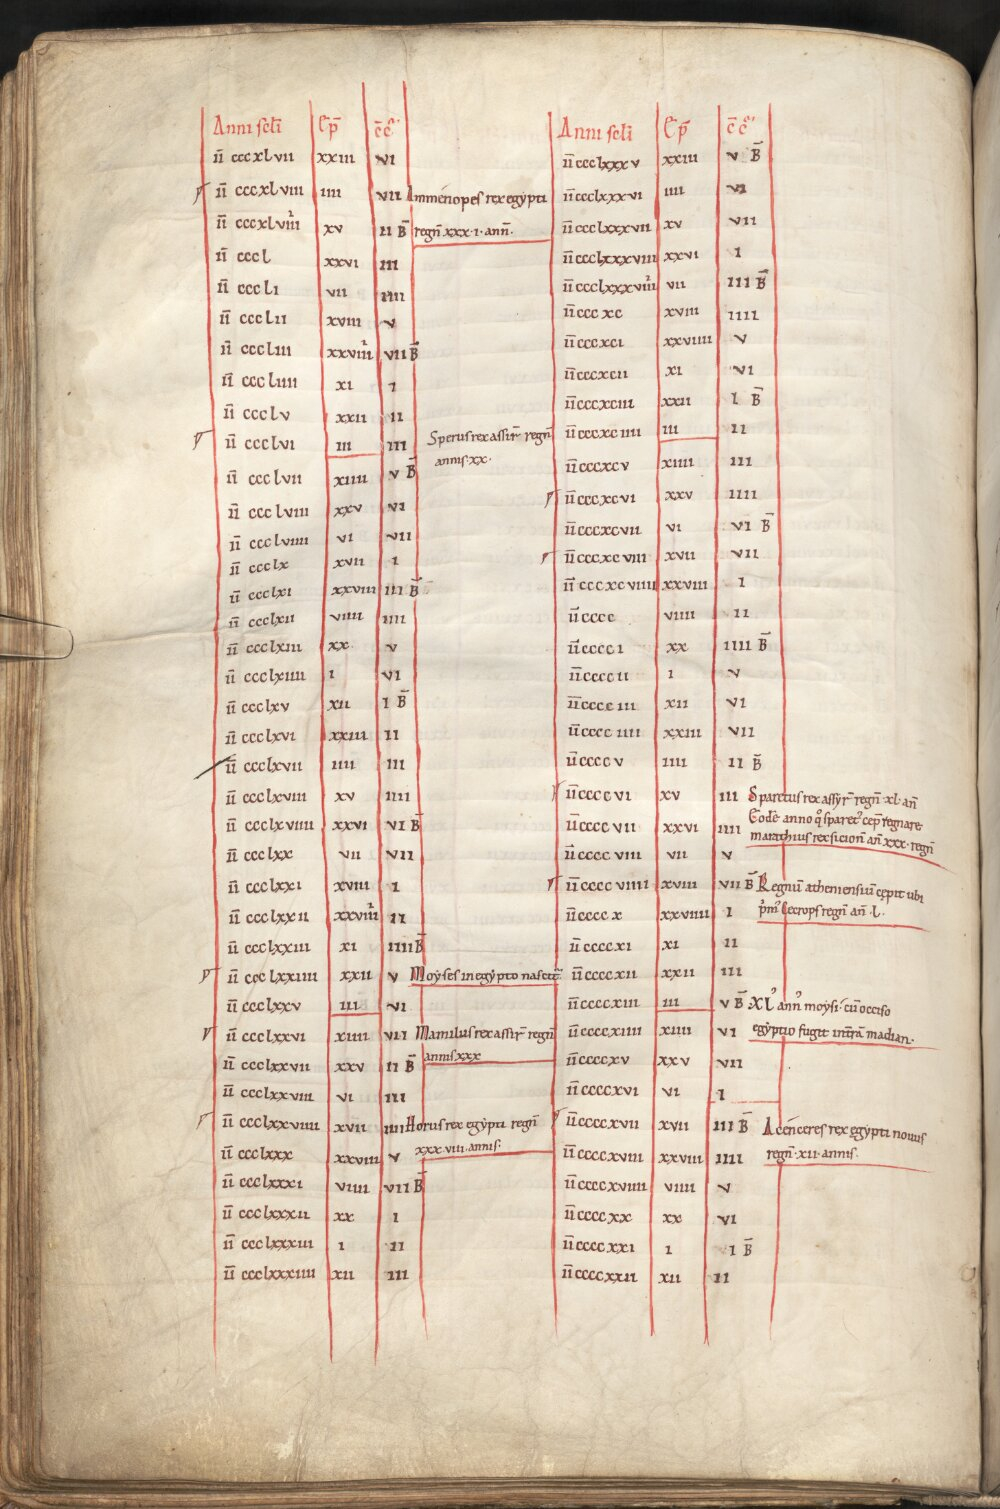 Anni scli Ep c̄c
īī cccxlvii xxiii vi
īī cccxlviii iiii vii Ammenopes rex egypti
īī cccxlviiii xv ii B̄ regn̄ xxx·i·ann̄·
īī cccl xxvi iii
īī cccli vii iiii
īī ccclii xviii v
īī cccliii xxviiii vii B̄
īī cccliiii xi i
īī ccclv xxii ii
īī ccclvi iii iii Sperus rex assir̄ regn̄
annis xx·
īī ccclvii xiiii v B̄
īī ccclviii xxv vi
īī ccclviiii vi vii
īī ccclx xvii i
īī ccclxi xxviii iii B̄
īī ccclxii viiii iiii
īī ccclxiii xx v
īī ccclxiiii i vi
īī ccclxv xii i B̄
īī ccclxvi xxiii ii
īī ccclxvii iiii iii
īī ccclxviii xv iiii
īī ccclxviiii xxvi vi B̄
īī ccclxx vii vii
īī ccclxxi xviii i
īī ccclxxii xxviiii ii
īī ccclxxiii xi iiii B̄
īī ccclxxiiii xxii v Moyses in egypto nascit᷑
īī ccclxxv iii vi
īī ccclxxvi xiiii vii Mamilus rex assir̄ regn̄
annis xxx
īī ccclxxvii xxv ii B̄
īī ccclxxviii vi iii
īī ccclxxviiii xvii iiii Horus rex egypti regn̄
xxx·viii·annis·
īī ccclxxx xxviii v
īī ccclxxxi viiii vii B̄
īī ccclxxxii xx i
īī ccclxxxiii i ii
īī ccclxxxiiii xii iii
Anni scli Ep c̄c
īī ccclxxxv xxiii v B̄
īī ccclxxxvi iiii vi
īī ccclxxxvii xv vii
īī ccclxxxviii xxvi i
īī ccclxxxviiii vii iii B̄
īī cccxc xviii iiii
īī cccxci xxviiii v
īī cccxcii xi vi
īī cccxciii xxii i B̄
īī cccxciiii iii ii
īī cccxcv xiiii iii
īī cccxcvi xxv iiii
īī cccxcvii vi vi B̄
īī cccxcviii xvii vii
īī cccxcviiii xxviii i
īī cccc viiii ii
īī cccci xx iiii B̄
īī ccccii i v
īī cccciii xii vi
īī cccciiii xxiii vii
īī ccccv iiii ii B̄
īī ccccvi xv iii Sparetus rex assyr̄ regn̄ xl· an̄
Eodē anno q° sparet᾿ cep̄ regnare
īī ccccvii xxvi iiii marathius rex sicion̄ an̄ xxx· regn̄
īī ccccviii vii v
īī ccccviiii xviii vii B̄ Regnū atheniensiū cępit ubi
p᾿m᾿ Cecrops regn̄ an̄·l·
īī ccccx xxviiii i
īī ccccxi xi ii
īī ccccxii xxii iii
īī ccccxiii iii v B̄ XL᾿ ann᾿ moysi· cū occiso
īī ccccxiiii xiiii vi egyptio fugit in tr̄ā madian·
īī ccccxv xxv vii
īī ccccxvi vi i
īī ccccxvii xvii iii B̄ Acenceres rex egypti novus
regn̄·xii·annis·
īī ccccxviii xxviii iiii
īī ccccxviiii viiii v
īī ccccxx xx vi
īī ccccxxi i i B̄
īī ccccxxii xii ii